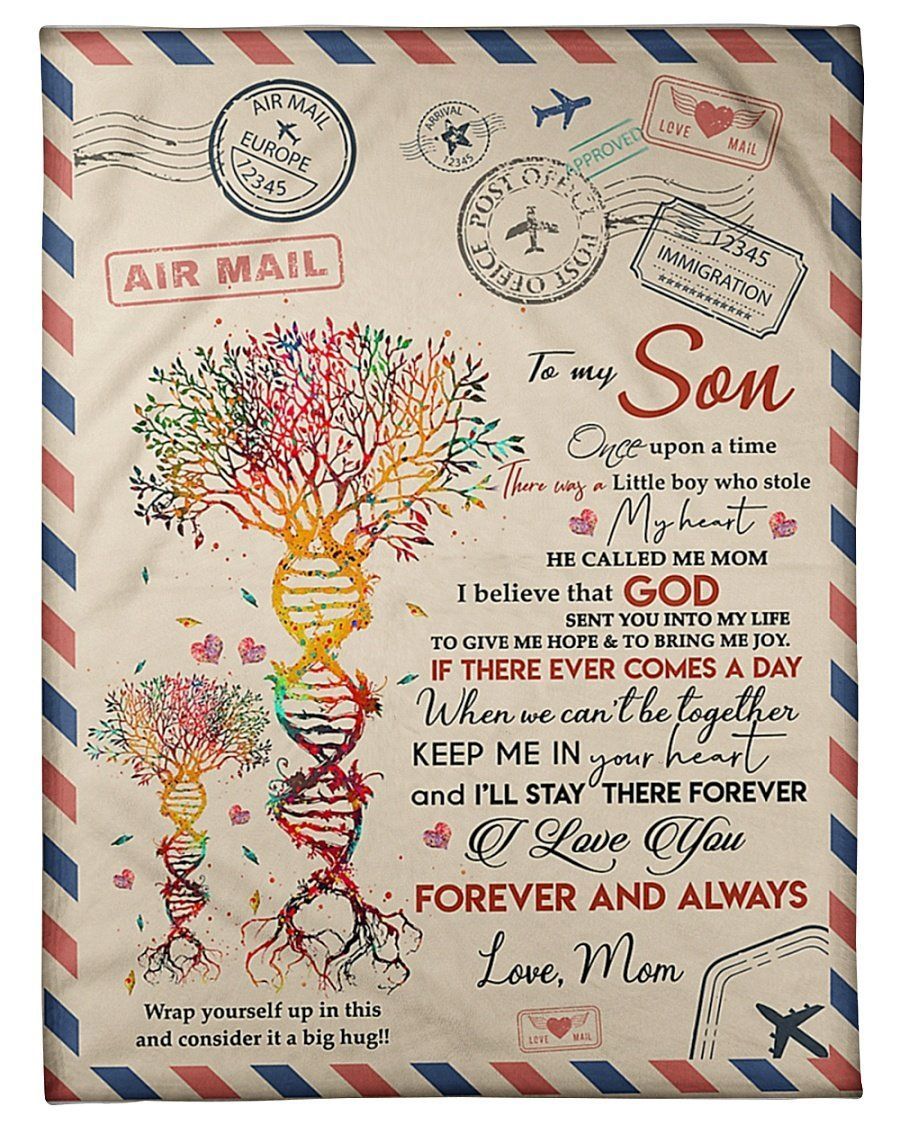 AIR MAIL
EUROPE
12345
ARRIVAL
12345
APPROVED
LOVE MAIL
POST OFFICE POST OFFICE
12345
IMMIGRATION
AIR MAIL
To my Son
Once upon a time
There was a Little boy who stole
My heart
HE CALLED ME MOM
I believe that GOD
SENT YOU INTO MY LIFE
TO GIVE ME HOPE & TO BRING ME JOY.
IF THERE EVER COMES A DAY
When we can't be together
KEEP ME IN your heart
and I'LL STAY THERE FOREVER
I Love You
FOREVER AND ALWAYS
Love, Mom
Wrap yourself up in this
and consider it a big hug!!
LOVE MAIL